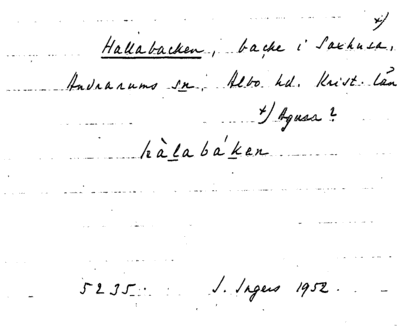 x)
Hallabacken, backe i Saxhusa,
Andrarums sn, Albo hd. Krist. län
x) Agusa?
hàlabáken
5235. I. Ingers 1952.